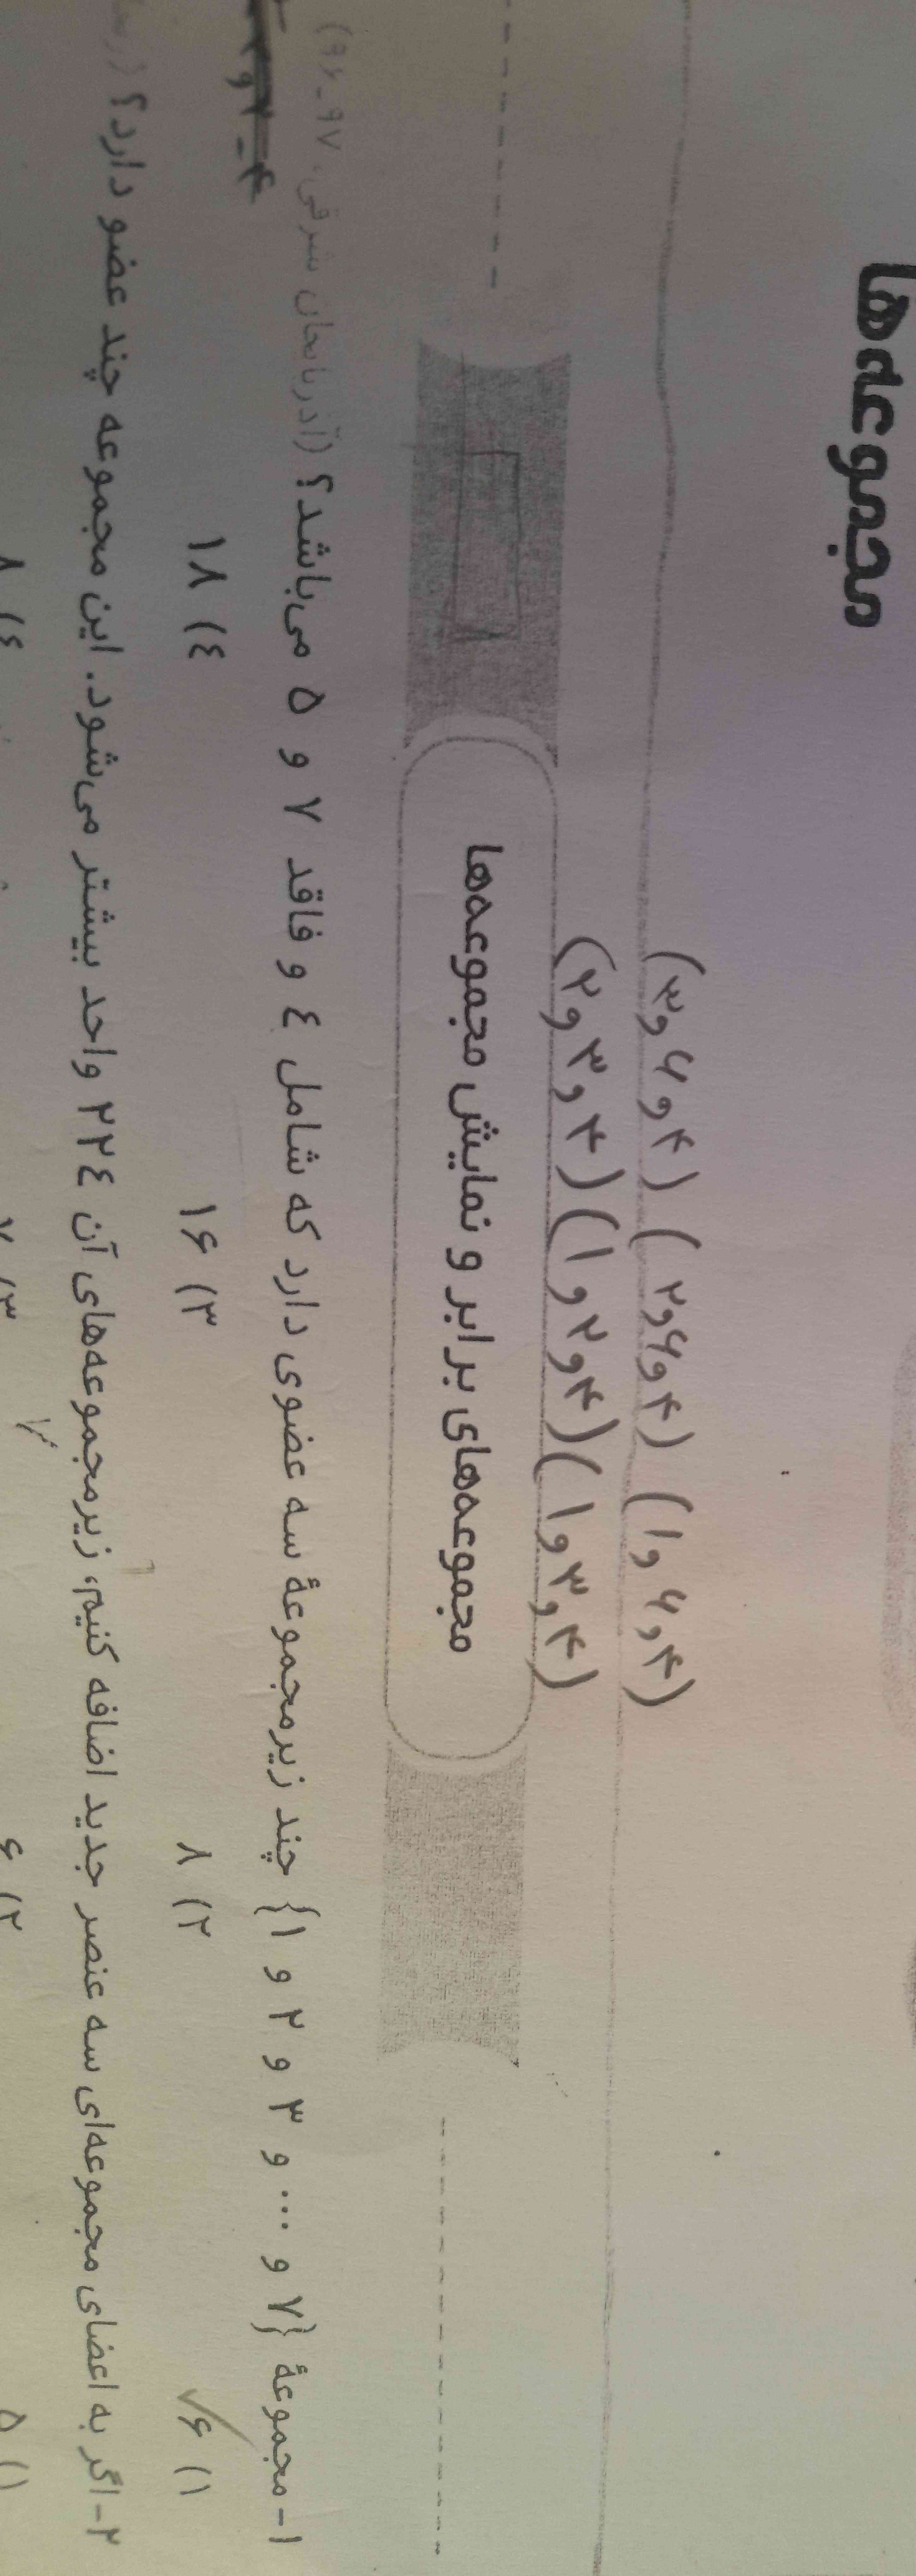 مجموعه‌ها
(۳و۶و۴) (۲و۶و۴) (۱و۶و۴)
(۲و۳و۴) (۱و۲و۴) (۱و۳و۴)
مجموعه‌های برابر و نمایش مجموعه‌ها
۱- مجموعهٔ {۷ و ... و ۳ و ۲ و ۱} چند زیرمجموعهٔ سه عضوی دارد که شامل ٤ و فاقد ۷ و ۵ می‌باشد؟ (آذربایجان شرقی، ۹۷-۹۶)
۱) ۶ ۲) ۸ ۳) ۱۶ ٤) ۱۸
۲- اگر به اعضای مجموعه‌ای سه عنصر جدید اضافه کنیم، زیرمجموعه‌های آن ۲۲٤ واحد بیشتر می‌شود. این مجموعه چند عضو دارد؟
۱) ۵ ۲) ۶ ۳) ۷ ٤) ۸